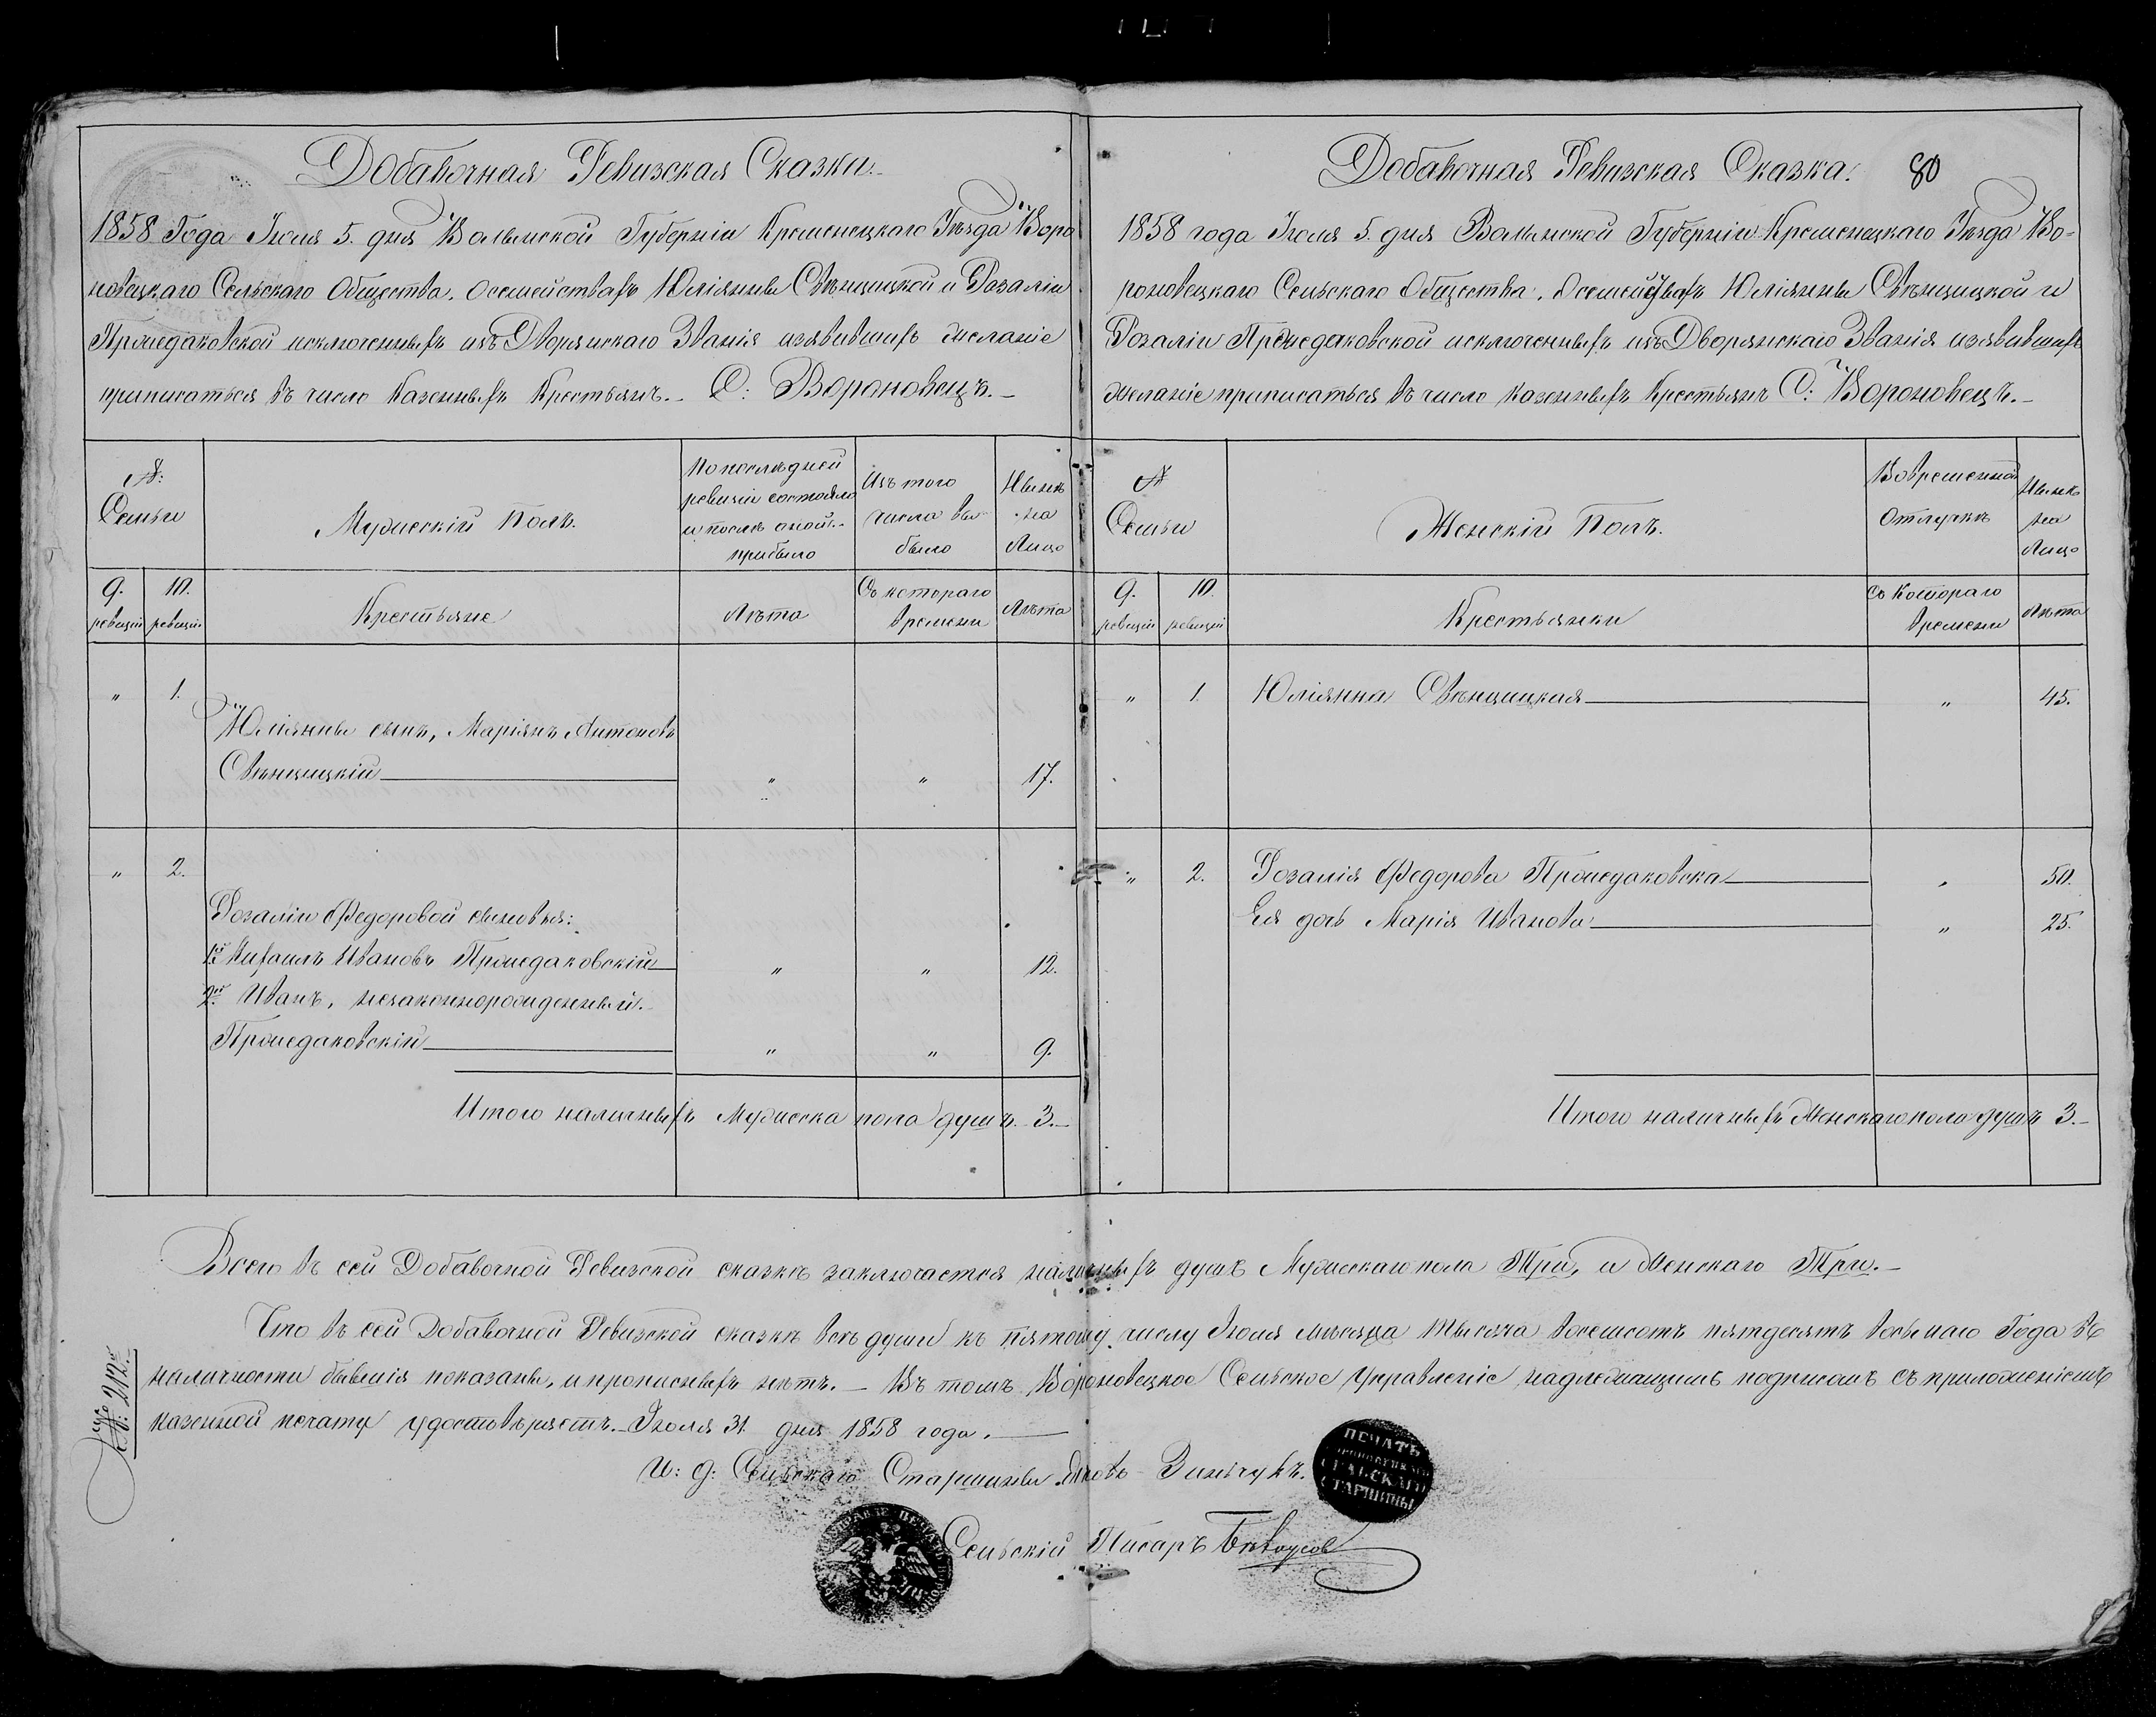 Добавочная Ревизская Сказка.
1858 Года Іюля 5. дня Волынской Губерніи Кременецкаго Уѣзда Воро
новецкаго Сельскаго Общества. О семействахъ Юліянны Свѣнцицкой и Розаліи
исключенныхъ изъ Дворянскаго Званія изявившихъ желаніе
приписаться въ число Казенныхъ Крестьянъ.- С: Вороновецъ.-
№:
Семьи
Мужескій Полъ.
По последней
ревизіи состояло
и послѣ оной
прибыло
Изъ того
числа вы
было
Нынѣ
на
Лицо
9. ревизіи
10. ревизіи
Крестьяне
Лѣта
Съ котораго
времени
Лѣта
" 1.
Юліянны сынъ, Маріянъ Антоновъ
Свѣнцицкій " " 17.
" 2.
Розаліи Федоровой сыновья:
1й Михаилъ Ивановъ " " 12.
2й Иванъ, незаконнорожденный.
" " 9.
Итого наличныхъ Мужеска пола душъ. 3.-
Добавочная Ревизская Сказка. 80
1858 года Іюля 5. дня Волынской Губерніи Кременецкаго Уѣзда Во=
роновецкаго Сельскаго Общества. О семействахъ Юліянны Свѣнцицкой и
Розаліи исключенныхъ изъ Дворянскаго Званія изявившихъ
желаніе приписаться въ число казенныхъ Крестьянъ С: Вороновецъ.-
№
Семьи
Женскій Полъ.
Во временной
Отлучкѣ
Нынѣ
на
Лицо
9. ревизіи
10. ревизіи
Крестьянки
Съ Котораго
времени
Лѣта
" 1. Юліянна Свѣнцицкая " 45.
" 2. Розалія Федорова " 50.
Ея дочь Марія Иванова " 25.
Итого наличныхъ Женскаго пола душъ 3.-
Всего въ сей Добавочной Ревизской сказкѣ заключается наличныхъ душъ Мужескаго пола Три, и Женскаго Три.-
Что въ сей Добавочной Ревизской сказкѣ всѣ души къ пятому числу Іюля мѣсяца тысяча восемсотъ пятдесятъ восьмаго Года въ
наличности бывшія показаны, и прописныхъ нѣтъ.- Въ томъ Вороновецкое Сельское Управленіе надлежащимъ подписомъ съ приложеніемъ
казенной печати удостовѣряетъ.- Іюля 31. дня 1858 года.
№: 212.-
И: д: Сельскаго Старшины Яковъ Зинчукъ.
ПЕЧАТЬ
СЕЛЬСКАГО
СТАРШИНЫ
Сельскій Писарь